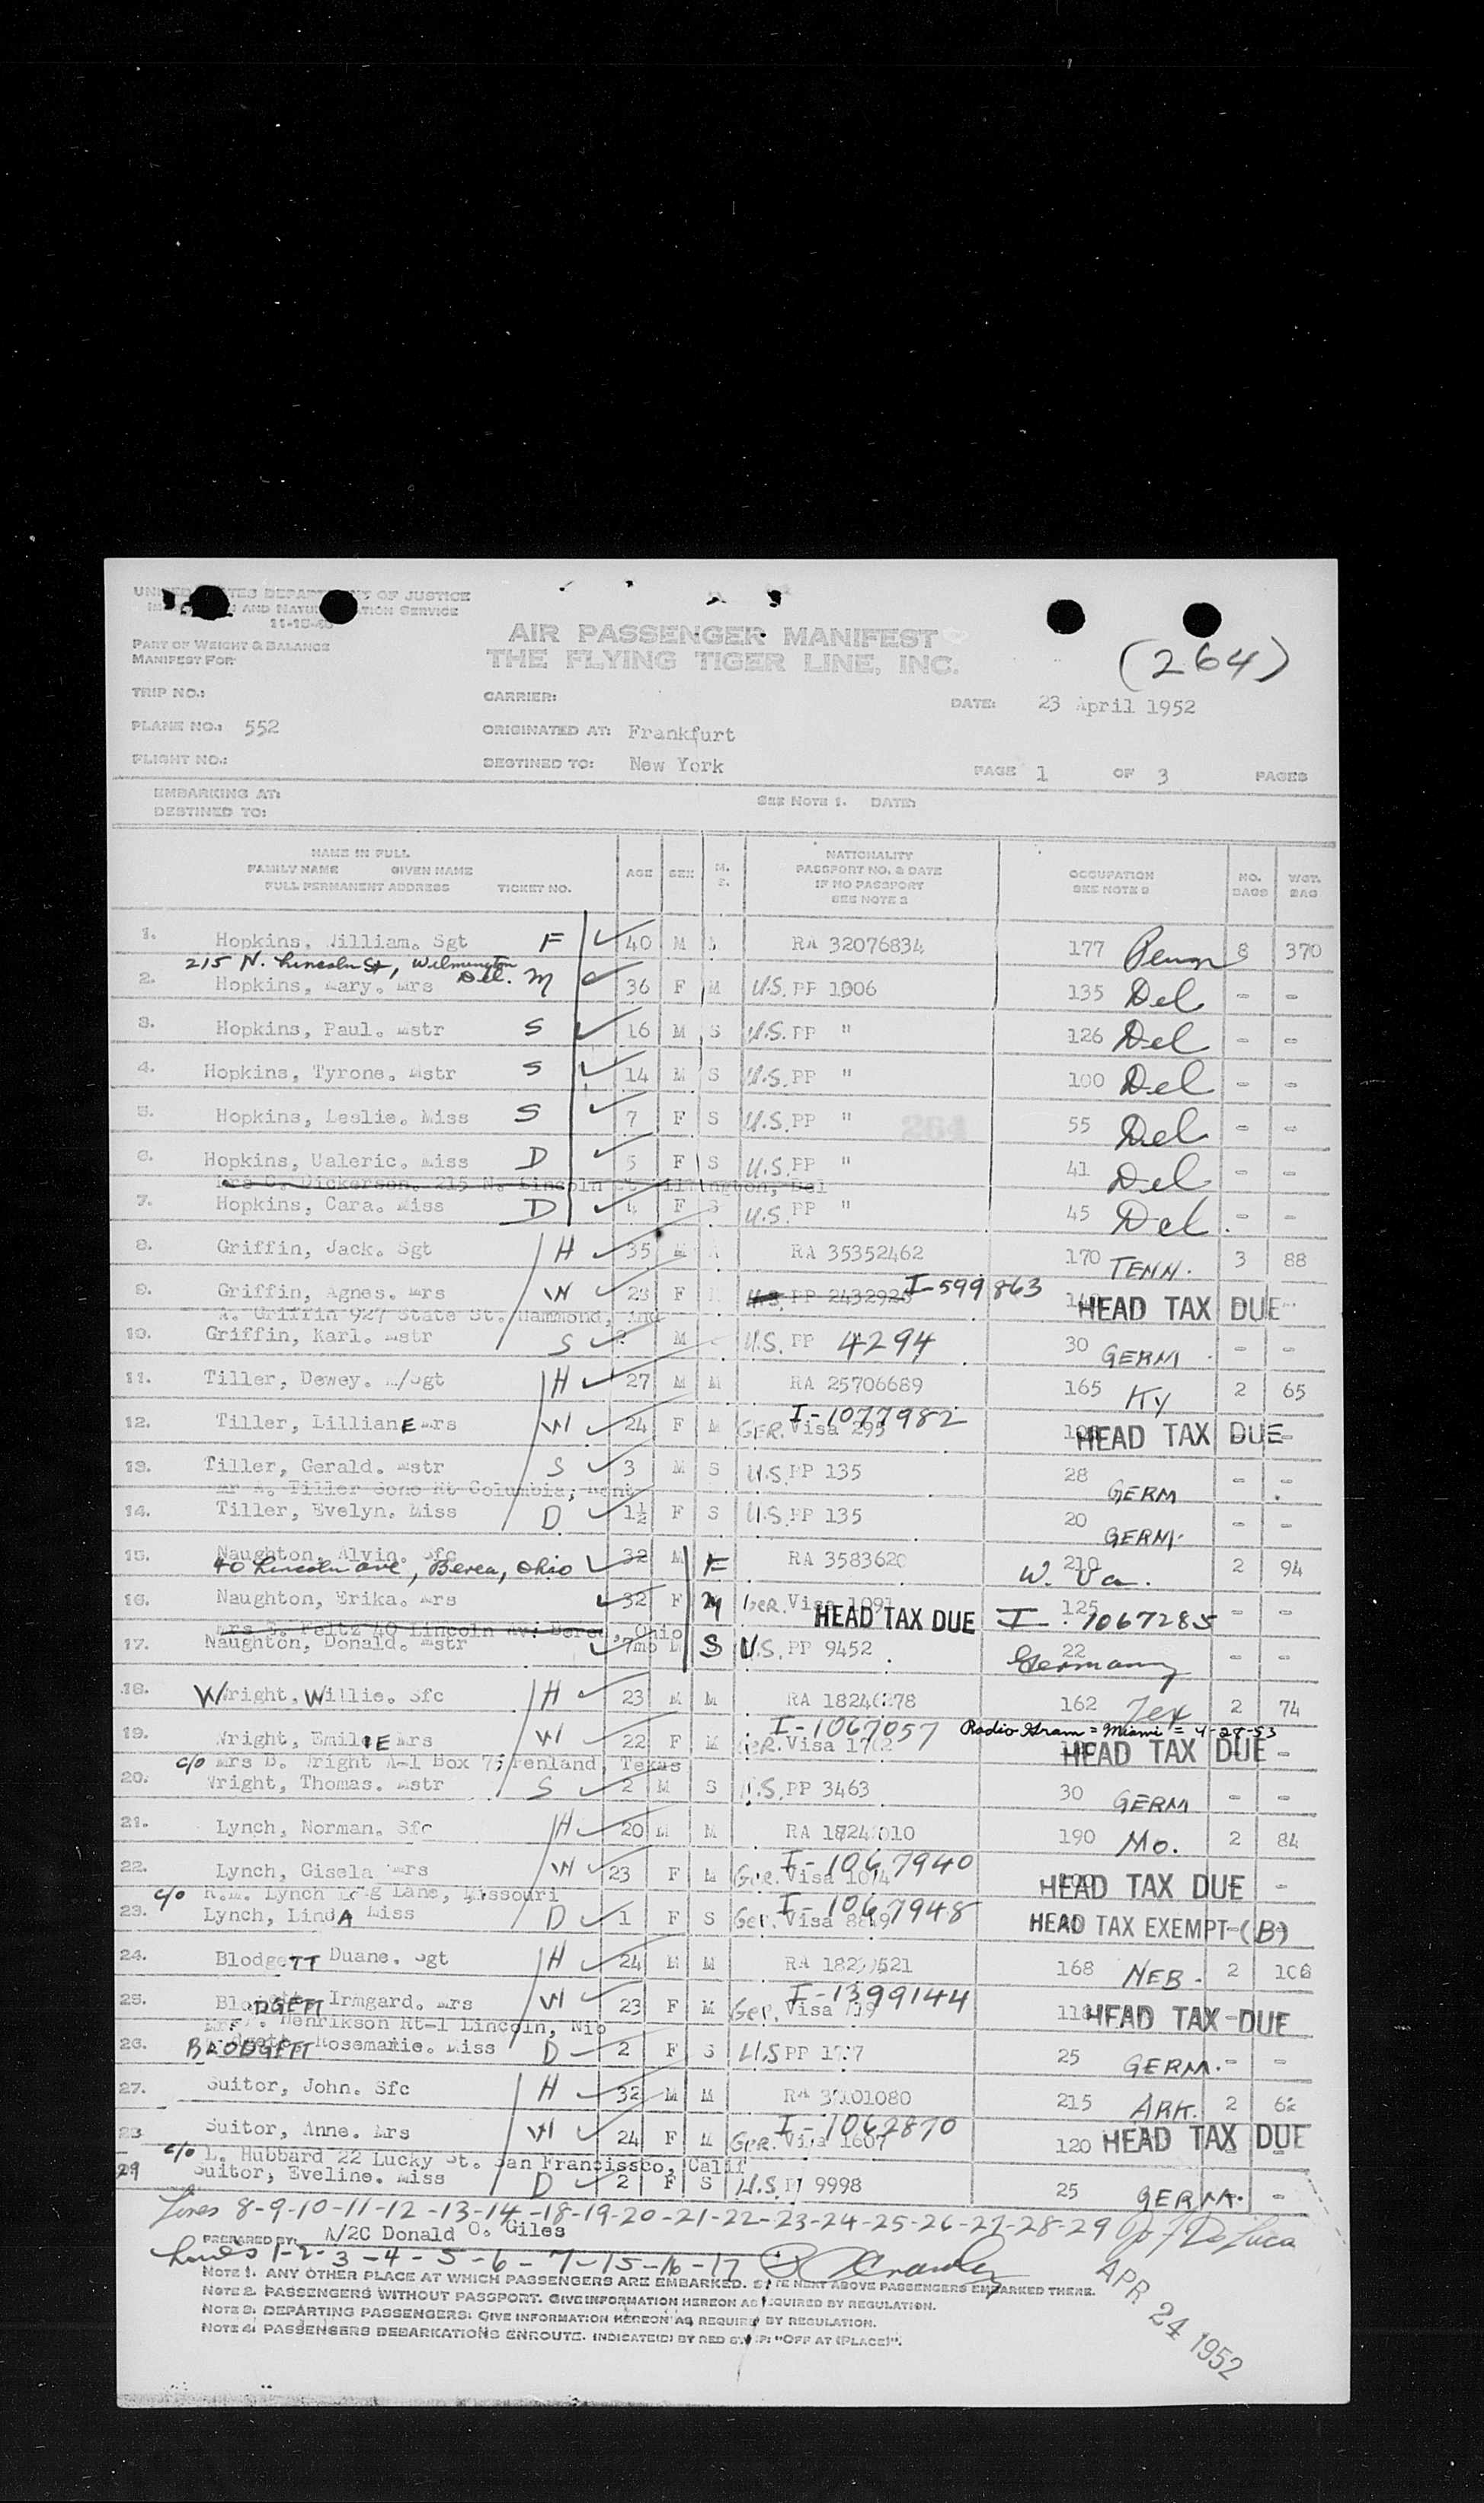 UNITED STATES DEPARTMENT OF JUSTICE
IMMIGRATION AND NATURALIZATION SERVICE
11-15-48
PART OF WEIGHT & BALANCE
MANIFEST FOR
AIR PASSENGER MANIFEST
THE FLYING TIGER LINE, INC.
(264)
TRIP NO.: CARRIER: DATE: 23 April 1952
PLANE NO.: 552 ORIGINATED AT: Frankfurt
FLIGHT NO.: DESTINED TO: New York PAGE 1 OF 3 PAGES
EMBARKING AT: SEE NOTE 1. DATE:
DESTINED TO:
NAME IN FULL
FAMILY NAME GIVEN NAME
FULL PERMANENT ADDRESS TICKET NO. AGE SEX M. S. NATIONALITY PASSPORT NO. & DATE IF NO PASSPORT SEE NOTE 2 OCCUPATION SEE NOTE 3 NO. BAGS WGT. BAG
1. Hopkins, William. Sgt F 40 M RA 32076834 177 Penn 8 370
215 N. Lincoln St, Wilmington Del.
2. Hopkins, Mary. Mrs M 36 F M U.S. PP 1006 135 Del - -
3. Hopkins, Paul. Mstr S 16 M S U.S. PP " 126 Del - -
4. Hopkins, Tyrone. Mstr S 14 M S U.S. PP " 100 Del - -
5. Hopkins, Leslie. Miss S 7 F S U.S. PP " 55 Del - -
264
6. Hopkins, Ualeric. Miss D 5 F S U.S. PP " 41 Del - -
Mrs D. Dickerson. 215 N. Lincoln St Wilmington, Del
7. Hopkins, Cara. Miss D 4 F S U.S. PP " 45 Del - -
8. Griffin, Jack. Sgt H 35 M RA 35352462 170 TENN. 3 88
9. Griffin, Agnes. Mrs W 28 F U.S. PP 2432926 I-599863 HEAD TAX DUE
A. Griffin 927 State St. Hammond, Ind
10. Griffin, Karl. Mstr S M U.S. PP 4294 30 GERM - -
11. Tiller, Dewey. M/Sgt H 27 M M RA 25706689 165 Ky 2 65
12. Tiller, LillianE Mrs W 24 F M GER. Visa 295 I-1077982 HEAD TAX DUE
13. Tiller, Gerald. Mstr S 3 M S U.S. PP 135 28 GERM - -
Mr A. Tiller Gone Rt Columbia, Kent
14. Tiller, Evelyn. Miss D 1½ F S U.S. PP 135 20 GERM. - -
15. Naughton, Alvin. Sfc 32 M F RA 3583620 210 W. Va. 2 94
40 Lincoln Ave, Berea, Ohio
16. Naughton, Erika. Mrs 32 F M Ger. Visa 1091 HEAD TAX DUE 125 I-1067285 - -
Mrs B. Peltz 40 Lincoln Av. Berea, Ohio
17. Naughton, Donald. Mstr 7mo S U.S. PP 9452 22 Germany - -
18. Wright, Willie. Sfc H 23 M M RA 18246278 162 Tex 2 74
Radio Gram = Miami = 4-27-53
19. Wright, EmiliE Mrs W 22 F M GER. Visa I-1067057 HEAD TAX DUE -
c/o Mrs B. Wright A-1 Box 75 Penland, Texas
20. Wright, Thomas. Mstr S 2 M S U.S. PP 3463 30 GERM - -
21. Lynch, Norman. Sfc H 20 M M RA 190 Mo. 2 84
22. Lynch, Gisela Mrs W 23 F M Ger. Visa I-1067940 HEAD TAX DUE -
c/o R.M. Lynch Lane, Missouri
23. Lynch, LindA Miss D 1 F S Ger. Visa I-1067948 HEAD TAX EXEMPT-(B)
24. BlodgeTT Duane. Sgt H 24 M M RA 168 NEB. 2 106
25. BloDGETT Irmgard. Mrs W 23 F M Ger. Visa I-1399144 HEAD TAX DUE
Henrikson Rt-1 Lincoln,
26. BLODGETT Rosemarie. Miss D 2 F S U.S PP 25 GERM. - -
27. Suitor, John. Sfc H 32 M M RA 215 ARK. 2 62
28 Suitor, Anne. Mrs W 24 F M GER. Visa 1607 I-1062870 120 HEAD TAX DUE
c/o L. Hubbard 22 Lucky St. San Francissco, Calif
29 Suitor, Eveline. Miss D 2 F S U.S. 9998 25 GERM. - -
Lines 8-9-10-11-12-13-14-18-19-20-21-22-23-24-25-26-27-28-29 De Luca
PREPARED BY: A/2C Donald O. Giles
Lines 1-2-3-4-5-6-7-15-16-17
NOTE 1. ANY OTHER PLACE AT WHICH PASSENGERS ARE EMBARKED. STATE NEXT ABOVE PASSENGERS EMBARKED THERE.
NOTE 2. PASSENGERS WITHOUT PASSPORT. GIVE INFORMATION HEREON AS REQUIRED BY REGULATION.
NOTE 3. DEPARTING PASSENGERS: GIVE INFORMATION HEREON AS REQUIRED BY REGULATION.
NOTE 4: PASSENGERS DEBARKATIONS ENROUTE. INDICATE(D) BY RED "OFF AT (PLACE)".
APR 24 1952